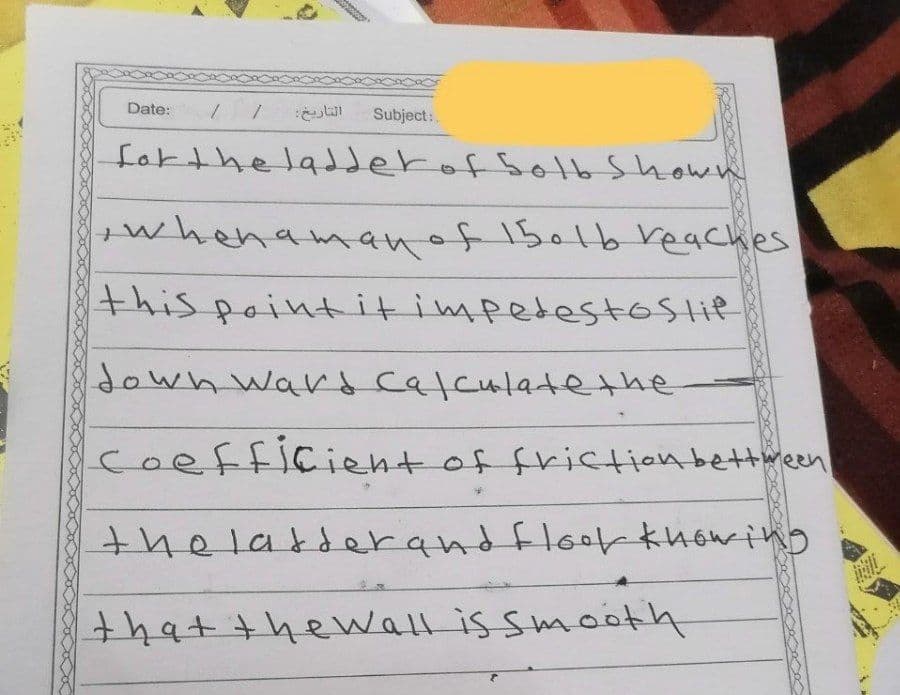 Date: / / التاريخ: Subject:
for the ladder of 50lb shown
, when a man of 150lb reaches
this point it impedes to slip
down ward calculate the
coefficient of friction bettween
the ladder and floor knowing
that the wall is smooth